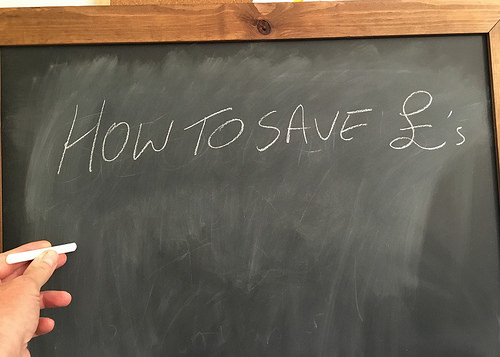 HOW TO SAVE £'s